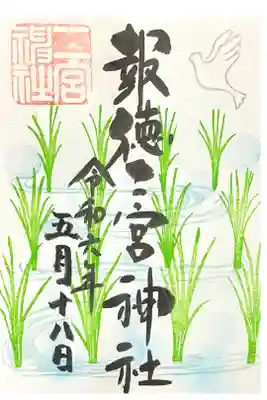 二宮
神社
報徳二宮神社
令和六年
五月十八日